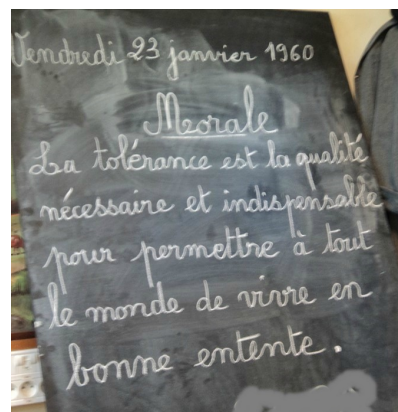 Vendredi 23 janvier 1960
Morale
La tolérance est la qualité
nécessaire et indispensable
pour permettre à tout
le monde de vivre en
bonne entente.